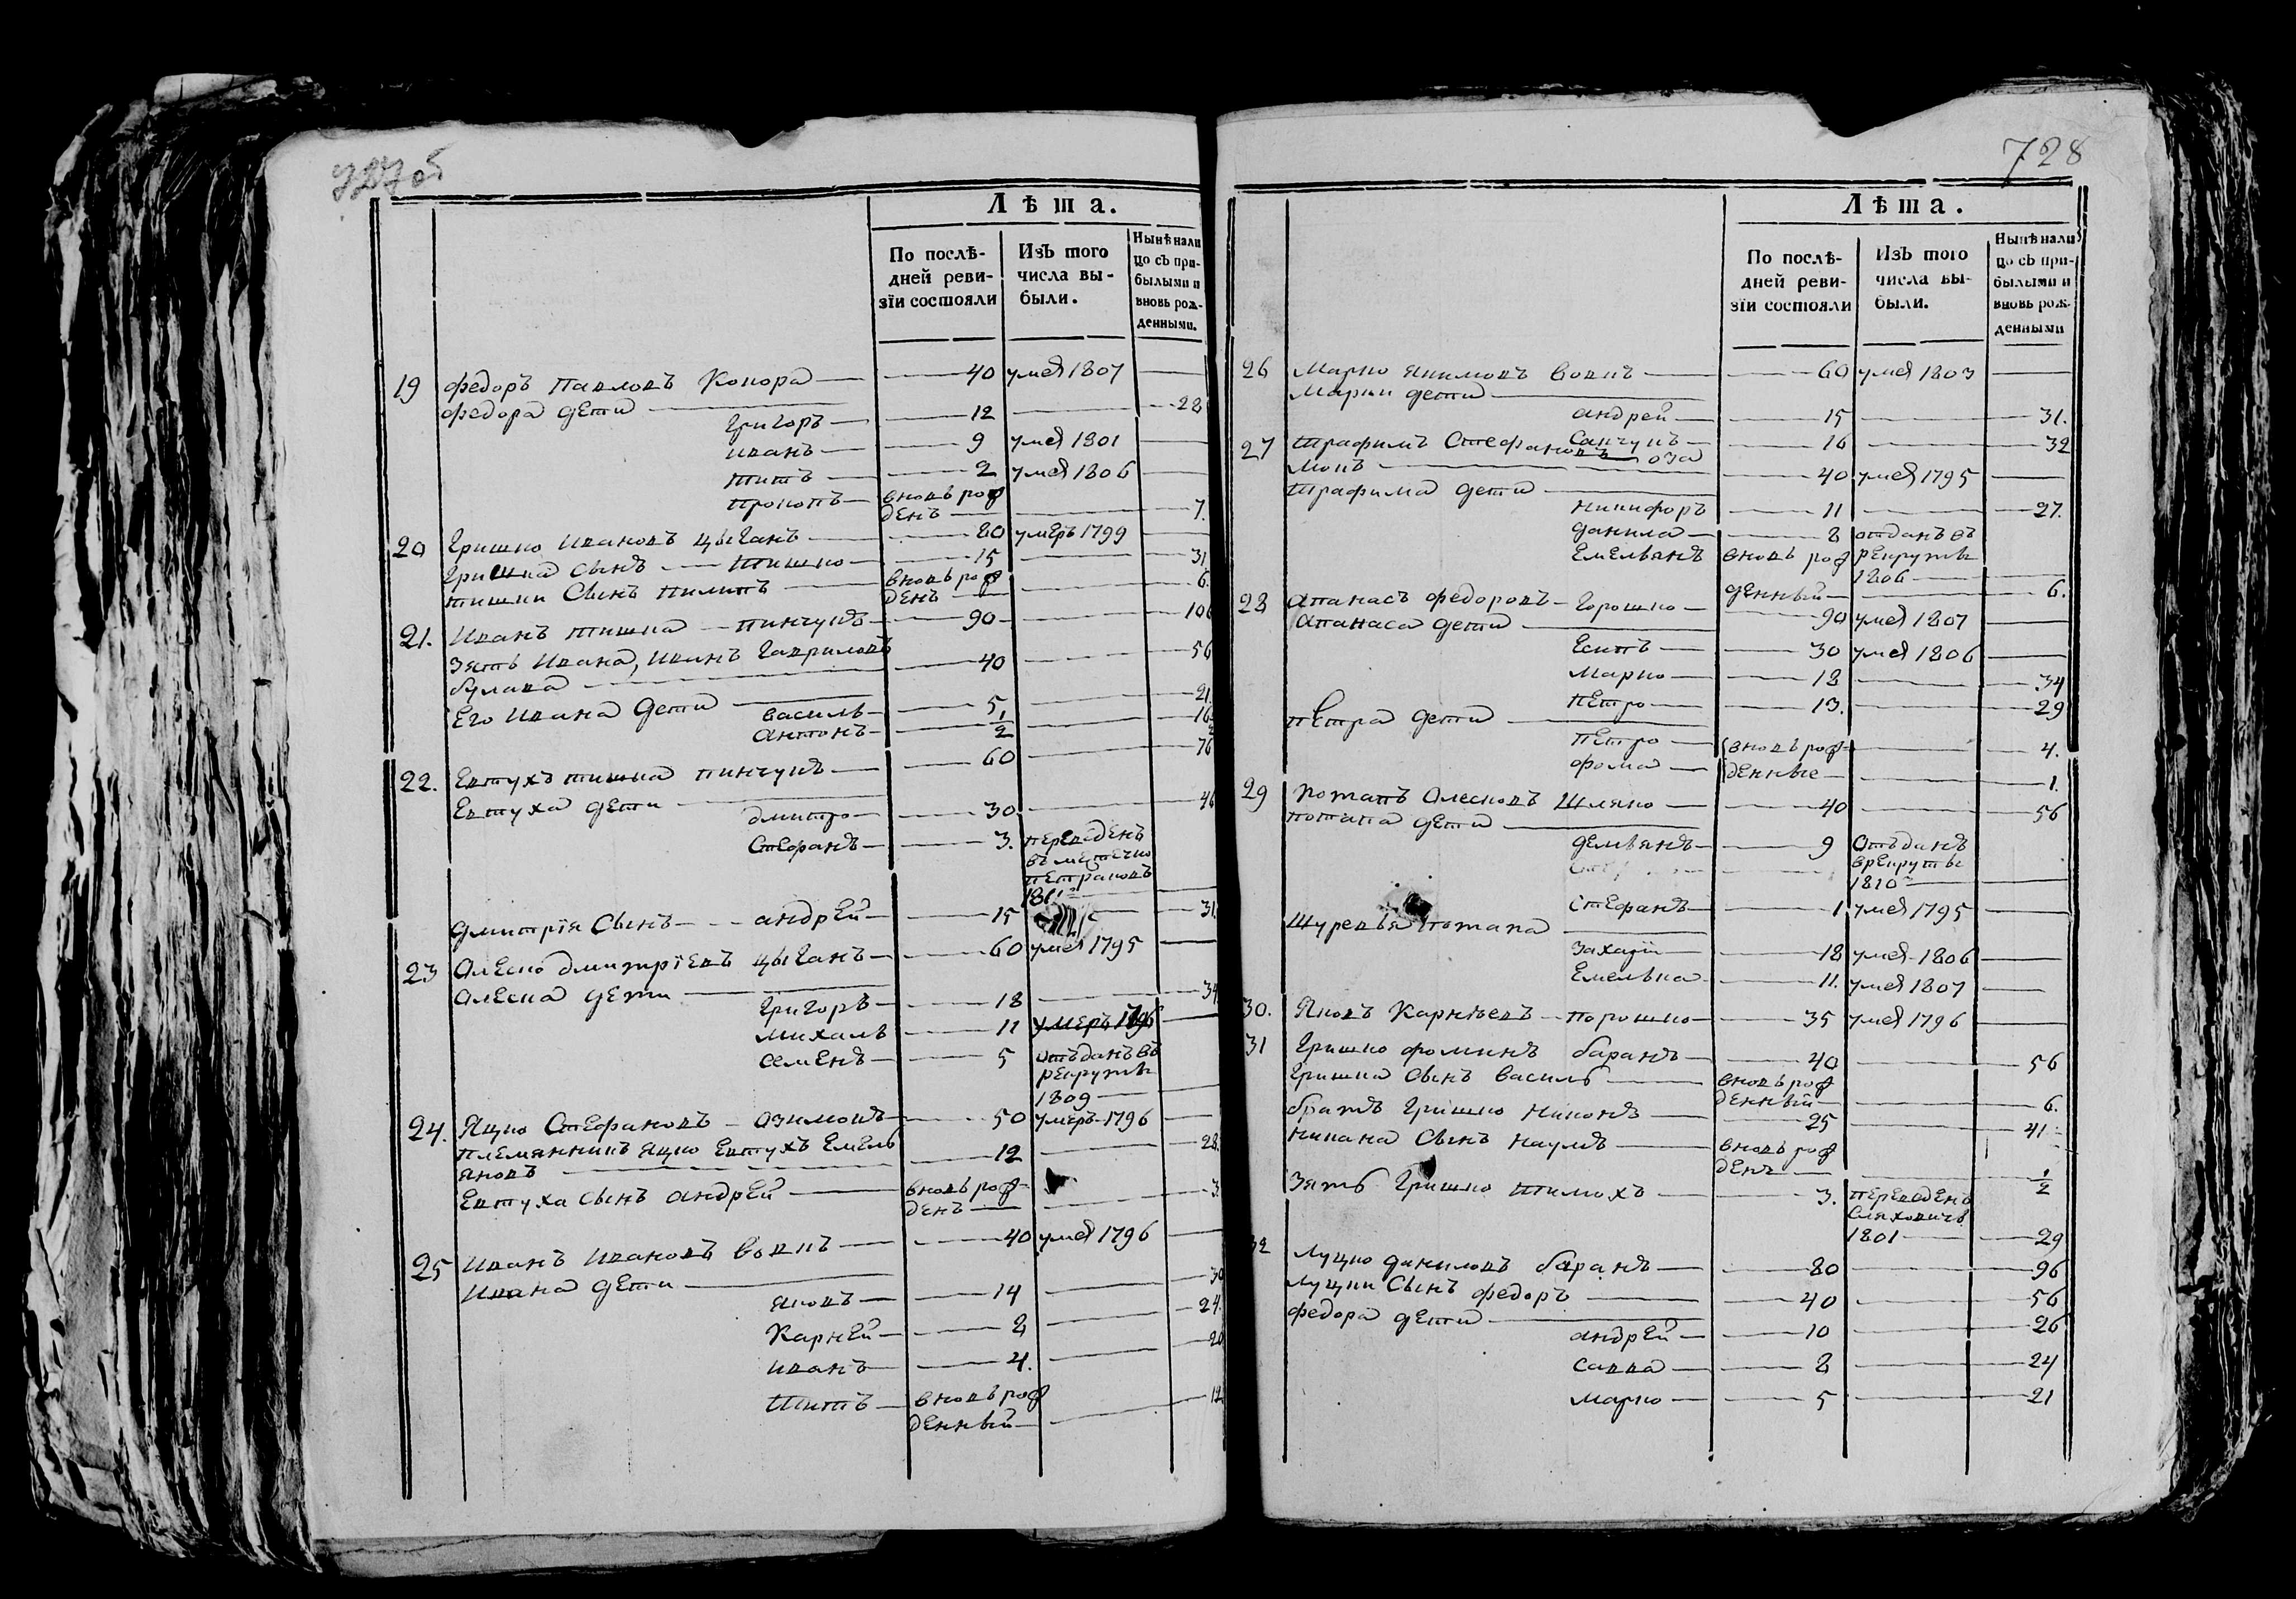 727об
Лѣта.
По послѣ-
дней реви-
зїи состояли
Изъ того
числа вы-
были.
Нынѣ нали
цо съ при-
былыми и
вновь рож-
денными.
19 Федоръ Павловъ Кокора 40 умеръ 1807
Федора дети
Григоръ 12 28
Иванъ 9 умеръ 1801
Титъ 2 умеръ 1806
Прокопъ вновь рож
денъ 7.
20 Гришко Ивановъ Цыганъ 80 умеръ 1799
Гришка Сынъ Тишко 15 31
Тишки Сынъ Пилипъ вновь рож
денъ 6.
21. Иванъ Тишка Пинчукъ 90 106
Зять Ивана, Иванъ Гавриловъ
булава 40 56
Его Ивана дети василь 5 21
антонъ 1/2 16
22. Евтухъ Тишка Пинчукъ 60 76
Евтуха дети
дмитро 30 46
Стефанъ 3. переведенъ
въ местечко
Петриковъ
1811
дмитрїя Сынъ андрей 15 31
23 Олеско дмитрїевъ Цыганъ 60 умеръ 1795
Олеска дети
Григоръ 18 34
михаль 11 умеръ 1796
семенъ 5 отъданъ въ
рекруты
1809
24. Яцко Стефановъ Азимокъ 50 умеръ 1796
племянникъ яцко Евтухъ Емель
яновъ 12 28
Евтуха сынъ андрей вновь рож
денъ 3
25 Иванъ Ивановъ вовкъ 40 умеръ 1796
Ивана дети
яковъ 14 30
Карней 8 24
иванъ 4. 20
Титъ вновь рож
денный 12
728
Лѣта.
По послѣ-
дней реви-
зїи состояли
Изъ того
числа вы-
были.
Нынѣ нали
цо съ при-
былыми и
вновь рож-
денными
26 Марко якимовъ вовкъ 60 умеръ 1803
Марки дети
андрей 15 31.
Санчукъ 16 32
27 Трафимъ Стефановъ оза
мокъ 40 умеръ 1795
Трафима дети
Никифоръ 11 27.
данила 8 отданъ въ
рекруты
1806
Емельянъ вновь рож
денный 6.
28 Апанасъ федоровъ Горошко 90 умеръ 1807
Апанаса дети
Есипъ 30 умеръ 1806
Марко 18 34
Петро 13. 29
Петра дети
Петро вновь рож 4.
фома денные 1.
29 Потапъ Олесковъ Шляко 40 56
потапа дети
демьянъ 9 Отъданъ
врекруты
1810
Стефанъ 1 умеръ 1795
Шуревья Потапа
Захарїй 18 умеръ 1806
Емельяна 11. умеръ 1807
30. Яковъ Карнѣевъ Порошко 35 умеръ 1796
31 Гришко фоминъ баранъ 40 56
Гришка Сынъ василь вновь рож
денный 6.
братъ Гришко Никонъ 25 41
Никана Сынъ Наумъ вновь рож
денъ 1/2
Зять Гришко Тимохъ 3. переведенъ
Сляховичъ
1801 29
32 Луцко даниловъ баранъ 80 96
Луцки Сынъ федоръ 40 56
федора дети
андрей 10 26
савва 8 24
марко 5 21